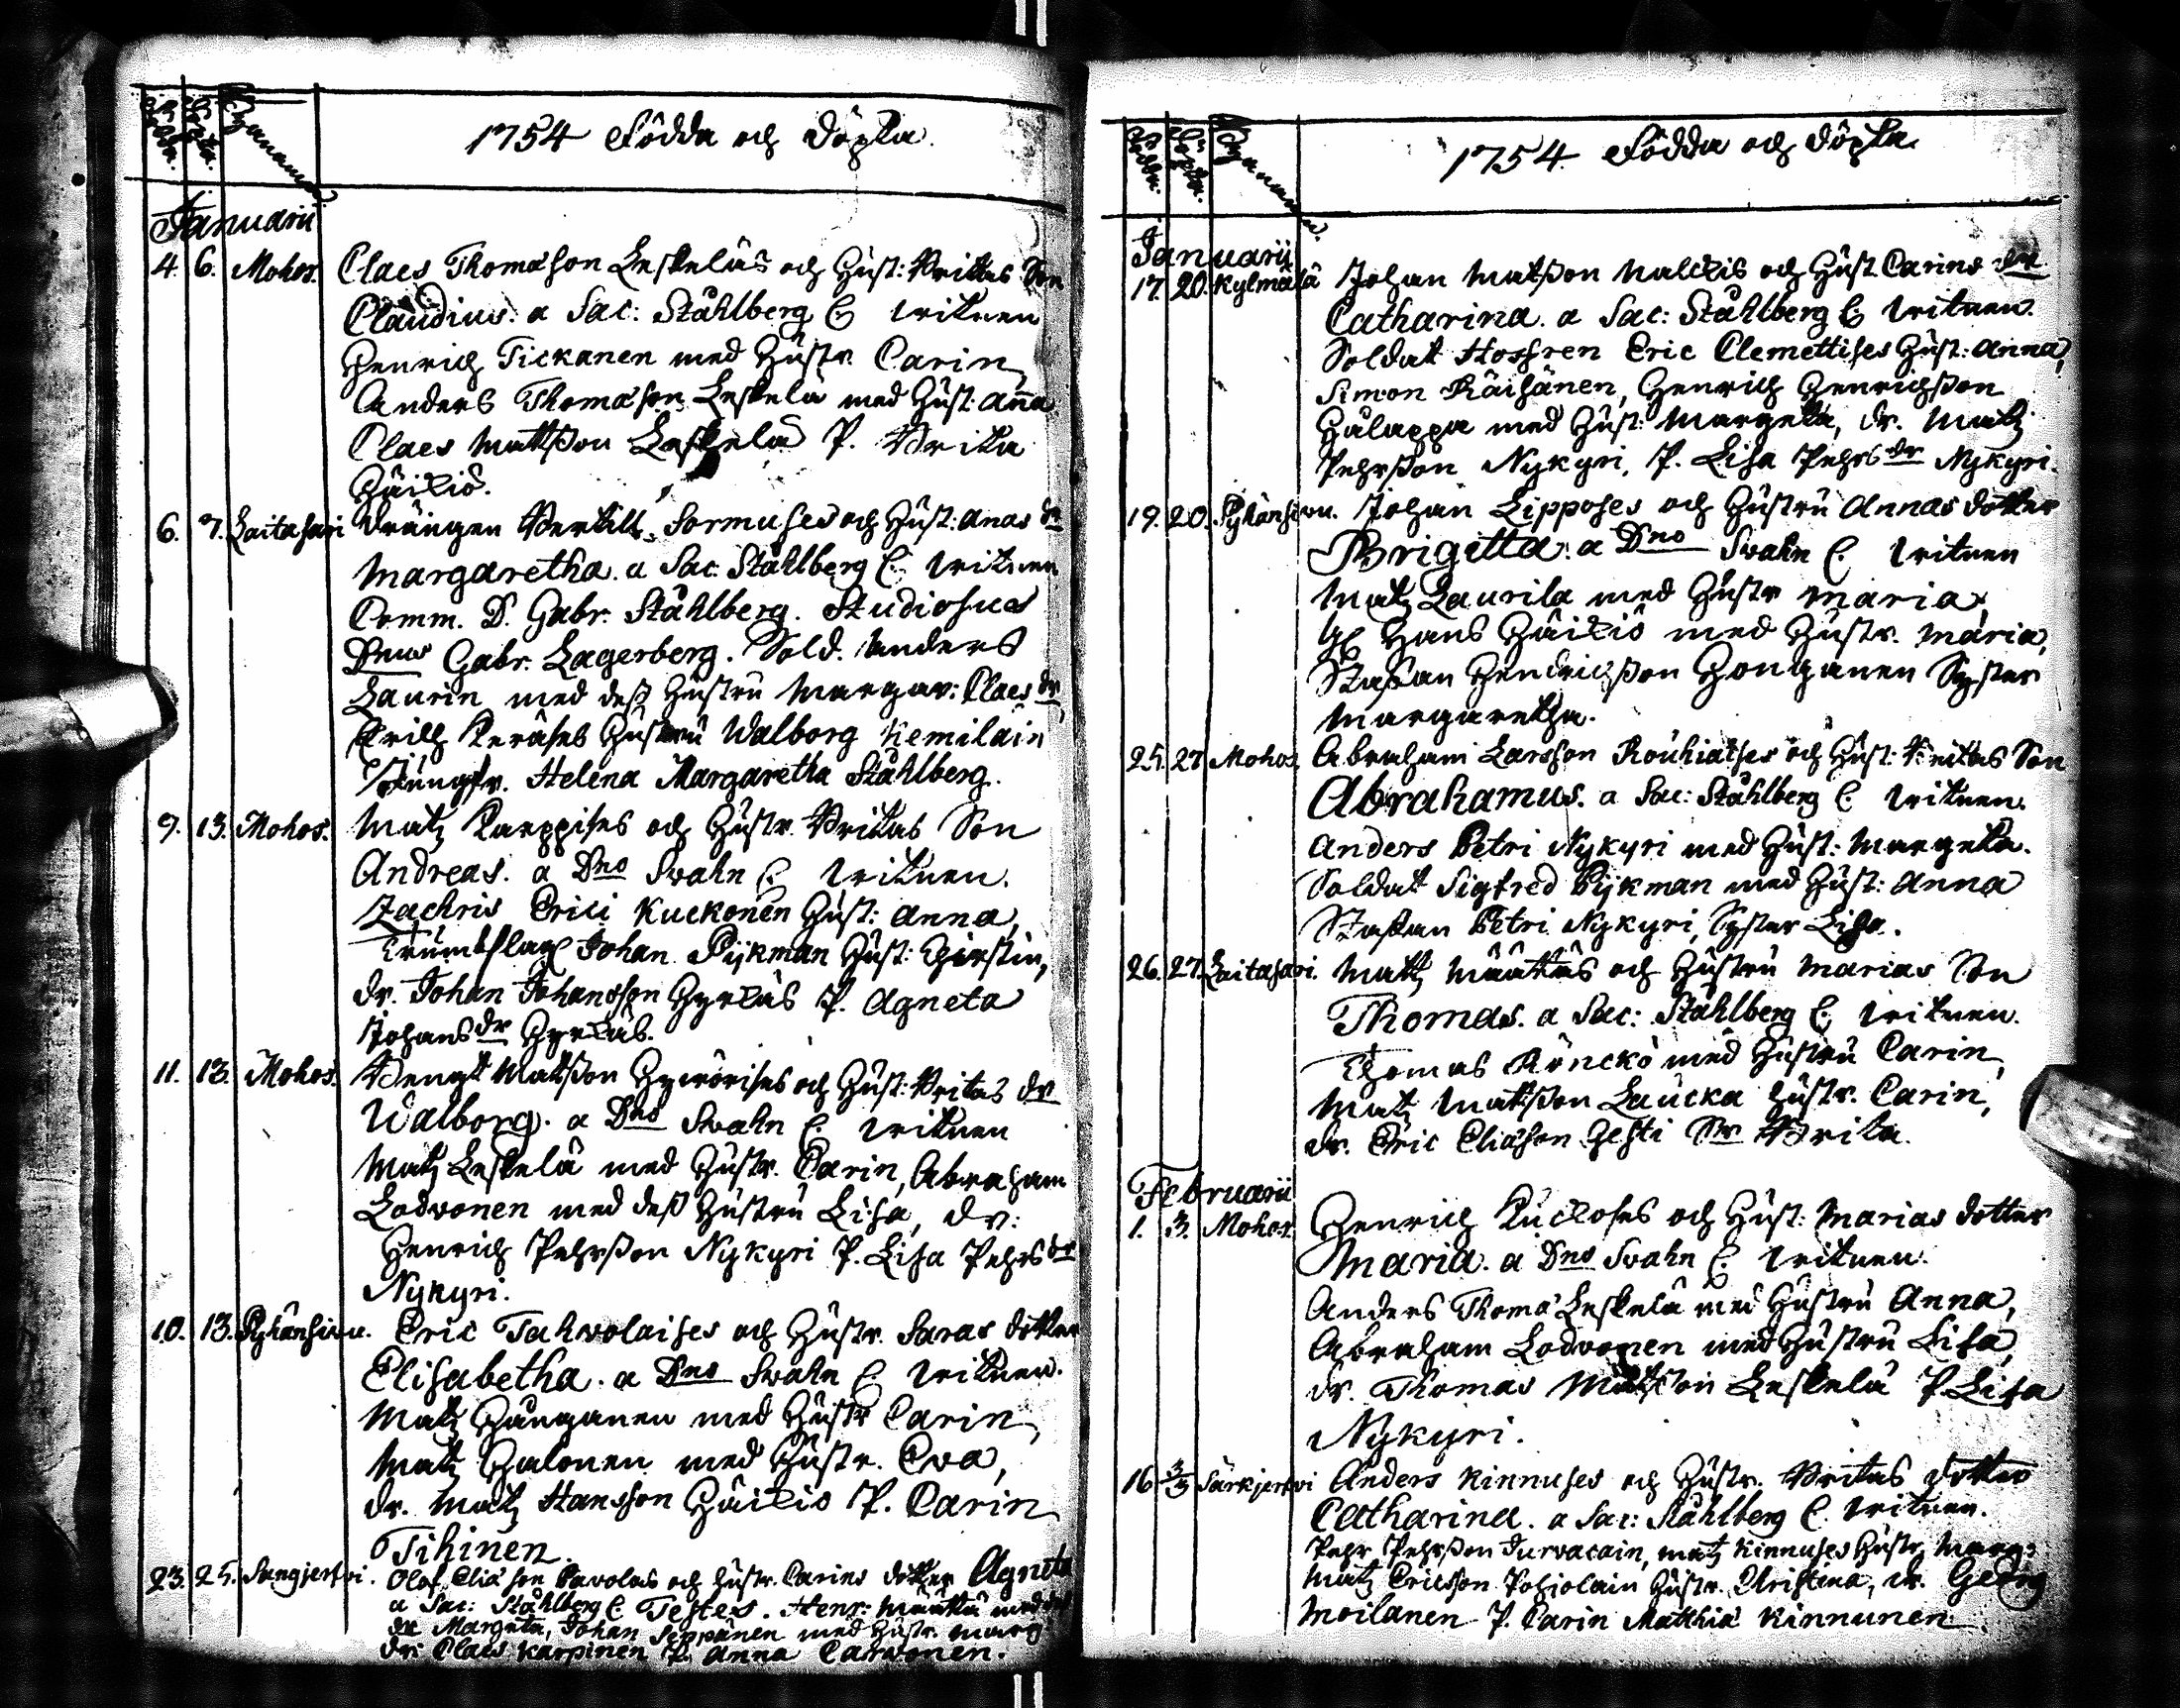 Födda. Döpta. Byanamn.
1754 Födda och Döpta.
Januarii
4. 6. Mohos. Claes Thomæson Leskeläs och Hust: Britas Son
Claudius. a Sac: Ståhlberg C. Witnen
Henrich Tickanen med Hustr. Carin,
Anders Thomæson Leskelä med Hust: Anna
Claes Mattsson Leskelä P. Brita
Häikiö.
6. 7. Laitasari Drängen Bertill Sormuses och Hust: Anas dr
Margaretha. a Sac: Ståhlberg C. Witnen
Comm. D. Gabr. Ståhlberg. Studiosus
Dnus Gabr. Lagerberg. Sold. Anders
Laurin med dess Hustru Margar: Claes dr,
Erich Keräses Hustru Walborg Kemiläin
Jungfr. Helena Margaretha Ståhlberg.
9. 13. Mohos. Matz Karppises och Hustr. Britas Son
Andreas. a Dno Svahn C. Witnen.
Zachris Erici Kuckonen Hust: Anna,
Trumbslag Johan Pijkman Hust: Chirstin,
Dr. Johan Johansson Hyrkäs P. Agneta
Johans dr Hyrkäs.
11. 13. Mohos. Bengt Matsson Hyvörises och Hust: Britas dr
Walborg. a Dno Svahn C. Witnen
Matz Leskelä med Hustr. Carin, Abraham
Lodvonen med dess Hustru Lisa, Dr:
Henrich Pehrsson Nykyri P. Lisa Pehrs dr
Nykyri.
10. 13. Pyhänsivu. Eric Tahvolaises och Hustr. Saras dotter
Elisabetha. a Dno Svahn C. Witnen.
Matz Hånganen med Hustr Carin,
Matz Halonen med Hustr. Eva,
Dr. Matz Hansson Häikiö P. Carin
Tihinen.
23. 25. Sangjerfvi. Olof Eliæ son Pavolas och Hustr. Carins dotter Agneta
a Sac: Ståhlberg C. Testes. Henr: Määttä med
dr Margeta, Johan Seppänen med Hustr. Marg
Dr: Claes Karpinen P. Anna Carvonen.
Födda. Döpta. Byanamn.
1754. Födda och Döpta.
Januarii
17. 20. Kylmälä Johan Matsson Malckis och Hust Carins dr
Catharina. a Sac: Ståhlberg C. Witnen.
Soldat Hossren Eric Clemettises Hust: Anna,
Simon Räisänen, Henrich Henrichsson
Halappa med Hust: Margeta, Dr. Matz
Pehrsson Nykyri, P. Lisa Pehrs dr Nykyri.
19. 20. Pyhänsivu. Johan Lipposes och Hustru Annas dotter
Brigitta. a Dno Svahn C. Witnen
Matz Laurila med Hustr Maria,
Hans Häikiö med Hustr. Maria,
Staffan Hendrichsson Honganen Syster
Margaretha.
25. 27 Mohos. Abraham Larsson Rouhiaises och Hust: Britas Son
Abrahamus. a Sac: Ståhlberg C. Witnen.
Anders Petri Nykyri med Hust: Margeta.
Soldat Sigfred Pijkman med Hust: Anna
Staffan Petri Nykyri, Syster Lisa.
26. 27. Laitasari. Matz Määttäs och Hustru Marias Son
Thomas. a Sac: Ståhlberg C. Witnen.
Thomas Rönckö med Hustru Carin,
Matz Matsson Laucka Hustr. Carin,
Dr. Eric Eliæson Hesti Sr Brita.
Februarii
1. 3. Mohos. Henrich Kuckoses och Hust: Marias dotter
Maria. a Dno Svahn C. Witnen.
Anders Thomæ Leskelä med Hustru Anna,
Abraham Lodvonen med Hustru Lisa,
Dr. Thomas Matsson Leskelä P. Lisa
Nykyri.
16 3/3 Särkjerfvi Anders Kinnuses och Hustr. Britas dotter
Catharina. a Sac: Ståhlberg C. Witnen.
Pehr Pehrsson Jurvacain, Matz Kinnuses Hustr. Marg:
Matz Ericsson Pohjolain Hustr. Christina, Dr. Georg
Moilanen P. Carin Matthiæ Kinnunen